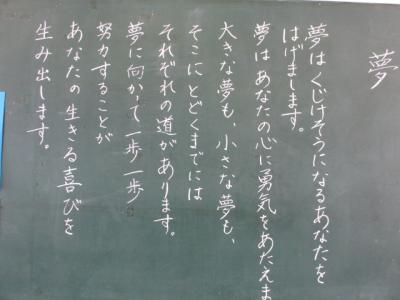 夢
夢はくじけそうになるあなたを
はげまします。
夢はあなたの心に勇気をあたえま
大きな夢も、小さな夢も、
そこにとどくまでには
それぞれの道があります。
夢に向かって一歩一歩
努力することが
あなたの生きる喜びを
生み出します。